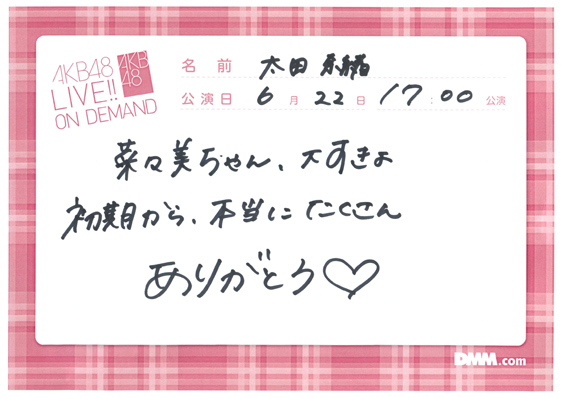 AKB48
LIVE!!
ON DEMAND
AKB
48
名 前 太田 奈緒
公演日 6 月 22 日 17:00 公演
菜々美ちゃん、大すきよ
初期から、本当にたくさん
ありがとう♡
DMM.com